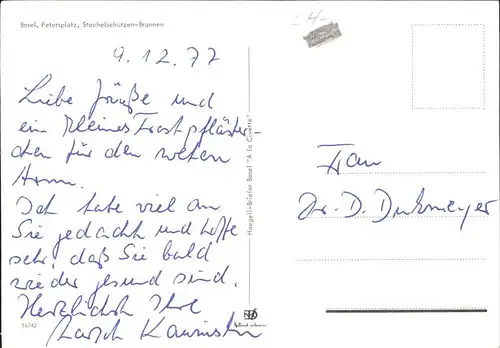 Basel, Petersplatz, Stachelschützen-Brunnen
9.12.77
Liebe Grüße und
ein kleines Trostpfläster-
chen für den wehen
Arm.
Ich habe viel an
Sie gedacht und hoffe
sehr, daß Sie bald
wieder gesund sind.
Herzlichst Ihre
16742
Haegeli-Briefer Basel "A la Civette"
4.-
Frau
Dr. D.